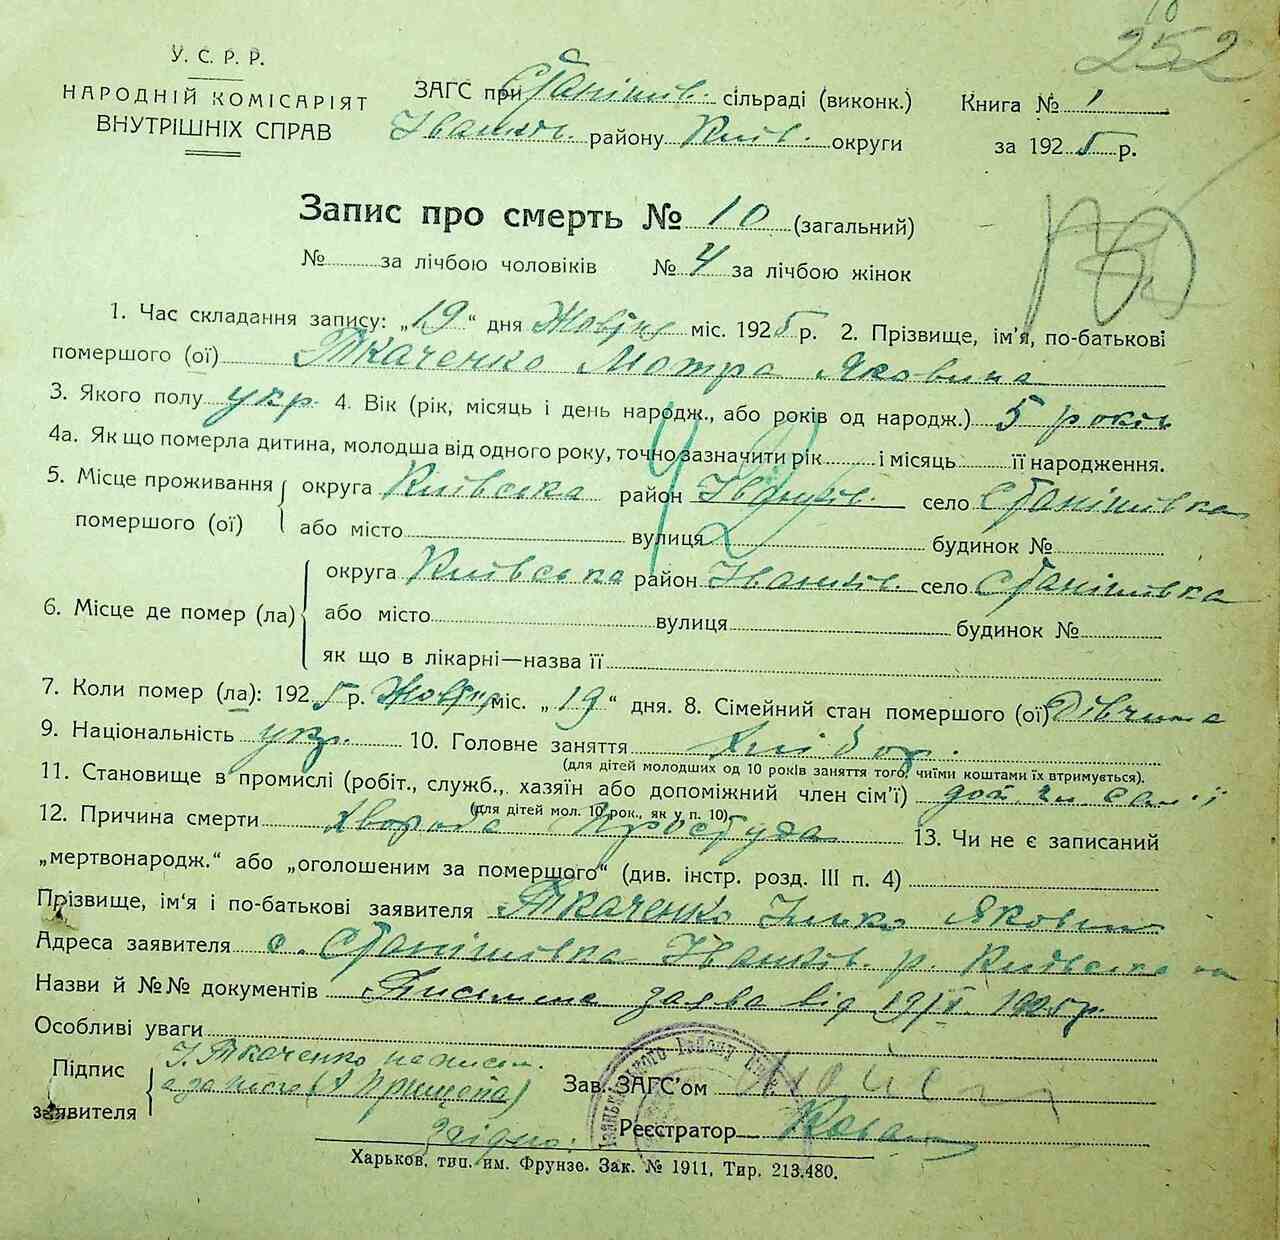 252
У. С. Р. Р.
НАРОДНІЙ КОМІСАРІЯТ
ВНУТРІШНІХ СПРАВ
ЗАГС при Станішів. сільраді (виконк.)
Іваньків. району Київ. округи
Книга № 1
за 1925 р.
Запис про смерть № 10 (загальний)
№ за лічбою чоловіків № 4 за лічбою жінок
1. Час складання запису: „19“ дня Жовтня міс. 1925 р. 2. Прізвище, ім'я, по-батькові
помершого (ої) Ткаченко Мотра Яковина
3. Якого полу укр. 4. Вік (рік, місяць і день народж., або років од народж.) 5 років
4а. Як що померла дитина, молодша від одного року, точно зазначити рік і місяць її народження.
5. Місце проживання помершого (ої) округа Київська район Іваньків. село Станішівка
або місто вулиця будинок №
6. Місце де помер (ла) округа Київська район Іваньків. село Станішівка
або місто вулиця будинок №
як що в лікарні—назва її
7. Коли помер (ла): 1925 р. Жовтня міс. „19“ дня. 8. Сімейний стан помершого (ої) Дівчина
9. Національність укр. 10. Головне заняття Хлібор.
(для дітей молодших од 10 років заняття того, чиїми коштами їх втримується).
11. Становище в промислі (робіт., служб., хазяїн або допоміжний член сім'ї) доп. чл. сем'ї
(для дітей мол. 10 рок., як у п. 10)
12. Причина смерти Хвороба Простуда 13. Чи не є записаний
„мертвонародж.“ або „оголошеним за помершого“ (див. інстр. розд. III п. 4)
Прізвище, ім'я і по-батькові заявителя Ткаченко Ілько Яковин
Адреса заявителя с. Станішівка Іваньків. р. Київська
Назви й №№ документів Писемна заява від 19/X 1925 р.
Особливі уваги
Підпис заявителя І. Ткаченко неписьм.
а за нього (Я Прищепа)
Згідно:
Зав. ЗАГС'ом
Реєстратор Коваль
Харьков, тип. им. Фрунзе. Зак. № 1911, Тир. 213.480.